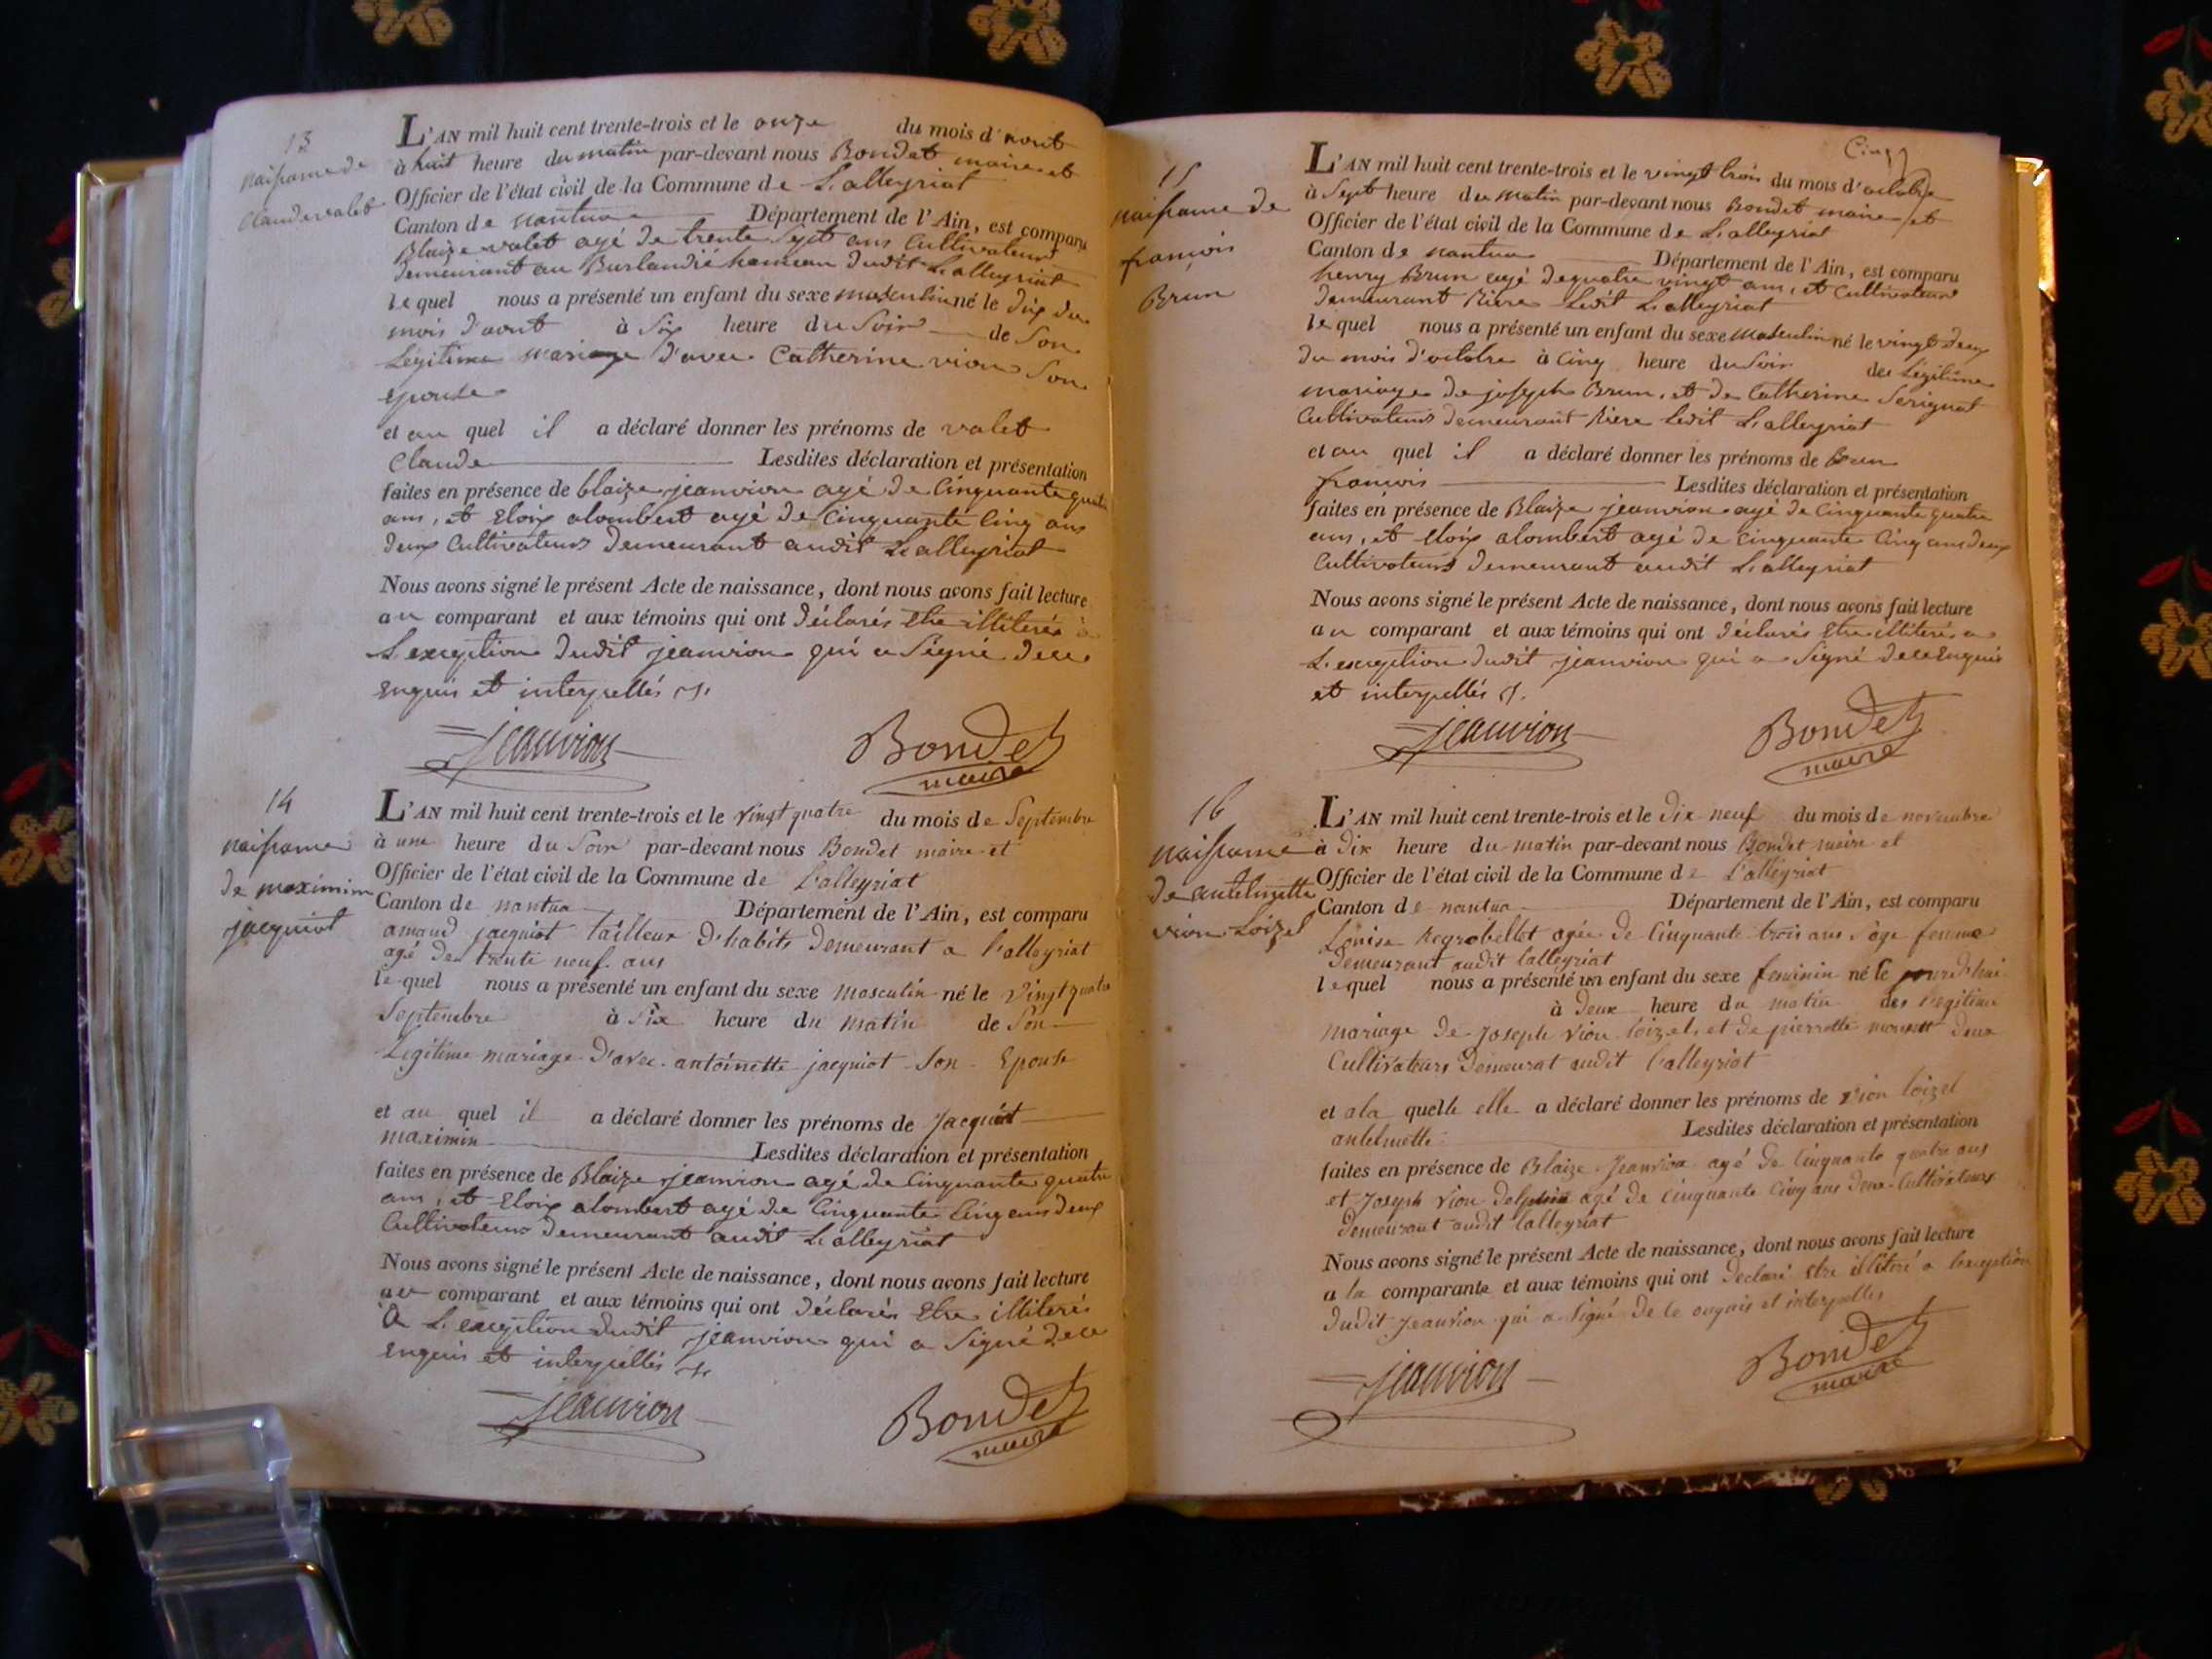 13
naissance de
claude valet
L'AN mil huit cent trente-trois et le onze du mois d'aout
à huit heure du matin par-devant nous Bondet maire et
Officier de l'état civil de la Commune de Lalleyriat
Canton de nantua Département de l'Ain, est comparu
Blaize valet agé de trente Sept ans Cultivateur
demeurant au Burlandié hameau dudit Lalleyriat
lequel nous a présenté un enfant du sexe masculin né le dix du
mois d'aout à Six heure du Soir de Son
Légitime mariage d'avec Catherine vion Son
epouse
et au quel il a déclaré donner les prénoms de valet
Claude Lesdites déclaration et présentation
faites en présence de blaize jeanvion agé de Cinquante quatre
ans, et Eloix alombert agé de Cinquante Cinq ans
deux Cultivateurs demeurant audit Lalleyriat
Nous avons signé le présent Acte de naissance, dont nous avons fait lecture
au comparant et aux témoins qui ont déclarés Etre illiterés à
L'exception dudit jeanvion qui a Signé de ce
Enquis et interpellés
jeanvion Bondet
maire
14
naissance
de maximin
jacquiot
L'AN mil huit cent trente-trois et le vingt quatre du mois de Septembre
à une heure du Soir par-devant nous Bondet maire et
Officier de l'état civil de la Commune de Lalleyriat
Canton de nantua Département de l'Ain, est comparu
amand jacquiot tailleur d'habits demeurant a Lalleyriat
agé de trente neuf ans
lequel nous a présenté un enfant du sexe masculin né le vingt quatre
Septembre à Six heure du matin de Son
Légitime mariage d'avec antoinette jacquiot Son Epouse
et au quel il a déclaré donner les prénoms de Jacquiot
maximin Lesdites déclaration et présentation
faites en présence de Blaize jeanvion agé de Cinquante quatre
ans, et Eloix alombert agé de Cinquante Cinq ans deux
Cultivateurs demeurant audit Lalleyriat
Nous avons signé le présent Acte de naissance, dont nous avons fait lecture
au comparant et aux témoins qui ont déclarés Etre illiterés
a L'exception dudit jeanvion qui a Signé de ce
enquis et interpellés
jeanvion Bondet
maire
Cinq
15
naissance de
francois
Brun
L'AN mil huit cent trente-trois et le vingt trois du mois d'octobre
à Sept heure du matin par-devant nous Bondet maire et
Officier de l'état civil de la Commune de Lalleyriat
Canton de nantua Département de l'Ain, est comparu
henry Brun agé de quatre vingt ans, et Cultivateur
demeurant Riere Ledit Lalleyriat
lequel nous a présenté un enfant du sexe masculin né le vingt deux
du mois d'octobre à Cinq heure du Soir de Légitime
mariage de joseph Brun, et de Catherine Serignat
Cultivateurs demeurant Riere Ledit Lalleyriat
et au quel il a déclaré donner les prénoms de Brun
francois Lesdites déclaration et présentation
faites en présence de Blaize jeanvion agé de Cinquante quatre
ans, et Eloix alombert agé de Cinquante Cinq ans deux
Cultivateurs demeurant audit Lalleyriat
Nous avons signé le présent Acte de naissance, dont nous avons fait lecture
au comparant et aux témoins qui ont déclarés Etre illiterés a
L'exception dudit jeanvion qui a Signé de ce Enquis
et interpellés
jeanvion Bondet
maire
16
naissance
de antelmette
vion Loizel
L'AN mil huit cent trente-trois et le dix neuf du mois de novembre
à dix heure du matin par-devant nous Bondet maire et
Officier de l'état civil de la Commune de Lalleyriat
Canton de nantua Département de l'Ain, est comparu
Louise agée de Cinquante trois ans Sage femme
demeurant audit Lalleyriat
lequel nous a présenté un enfant du sexe feminin né le jourdhui
à deux heure du matin de Legitime
mariage de Joseph vion loizel, et de pierrette deux
Cultivateurs demeurat audit Lalleyriat
et a la quelle elle a déclaré donner les prénoms de vion loizel
antelmette Lesdites déclaration et présentation
faites en présence de Blaize Jeanvion agé de Cinquante quatre ans
et Joseph vion delphin agé de Cinquante Cinq ans deux Cultivateurs
demeurant audit Lalleyriat
Nous avons signé le présent Acte de naissance, dont nous avons fait lecture
a la comparante et aux témoins qui ont declaré etre illiteré a lexception
dudit Jeanvion qui a Signé de ce enquis et interpelles
jeanvion Bondet
maire